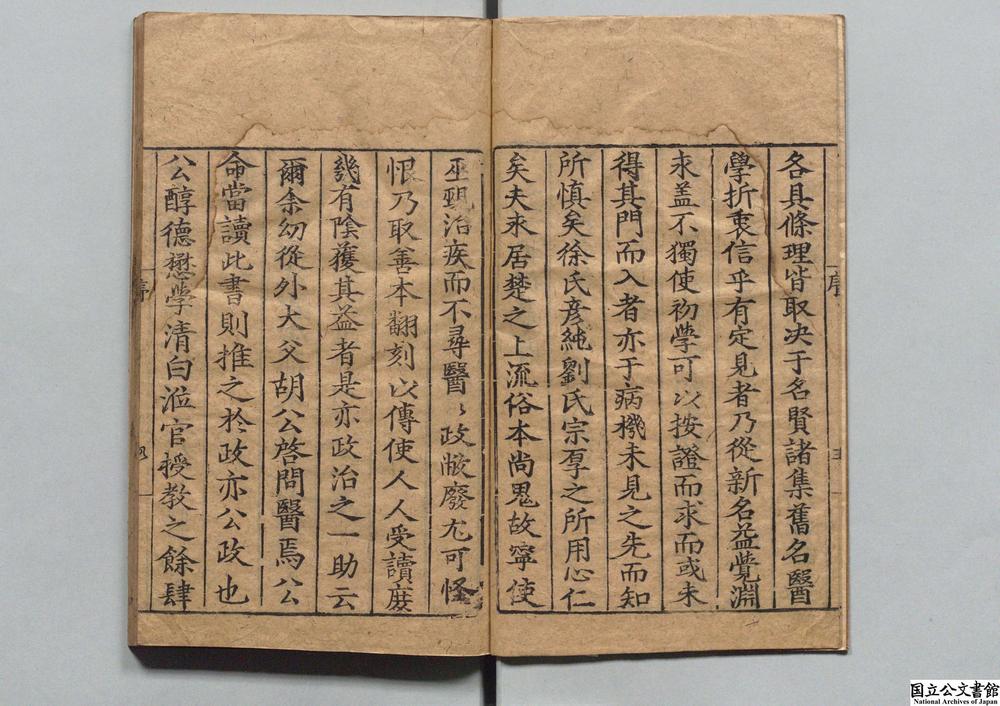 各具條理皆取决于名賢諸集舊名醫
學折衷信乎有定見者乃從新名益覺淵
永盖不獨使初學可以按證而求而或未
得其門而入者亦于病機未見之先而知
所慎矣徐氏彦純劉氏宗厚之所用心仁
矣夫永居楚之上流俗本尚鬼故寧使
巫覡治疾而不尋醫〻政敝廢尤可怪
恨乃取善本翻刻以傳使人人受讀庶
幾有陰獲其益者是亦政治之一助云
爾余幼從外大父胡公啓問醫焉公
命當讀此書則推之於政亦公政也
公醇德懋學清白涖官授教之餘肆
序
三
序
四
国立公文書館
National Archives of Japan